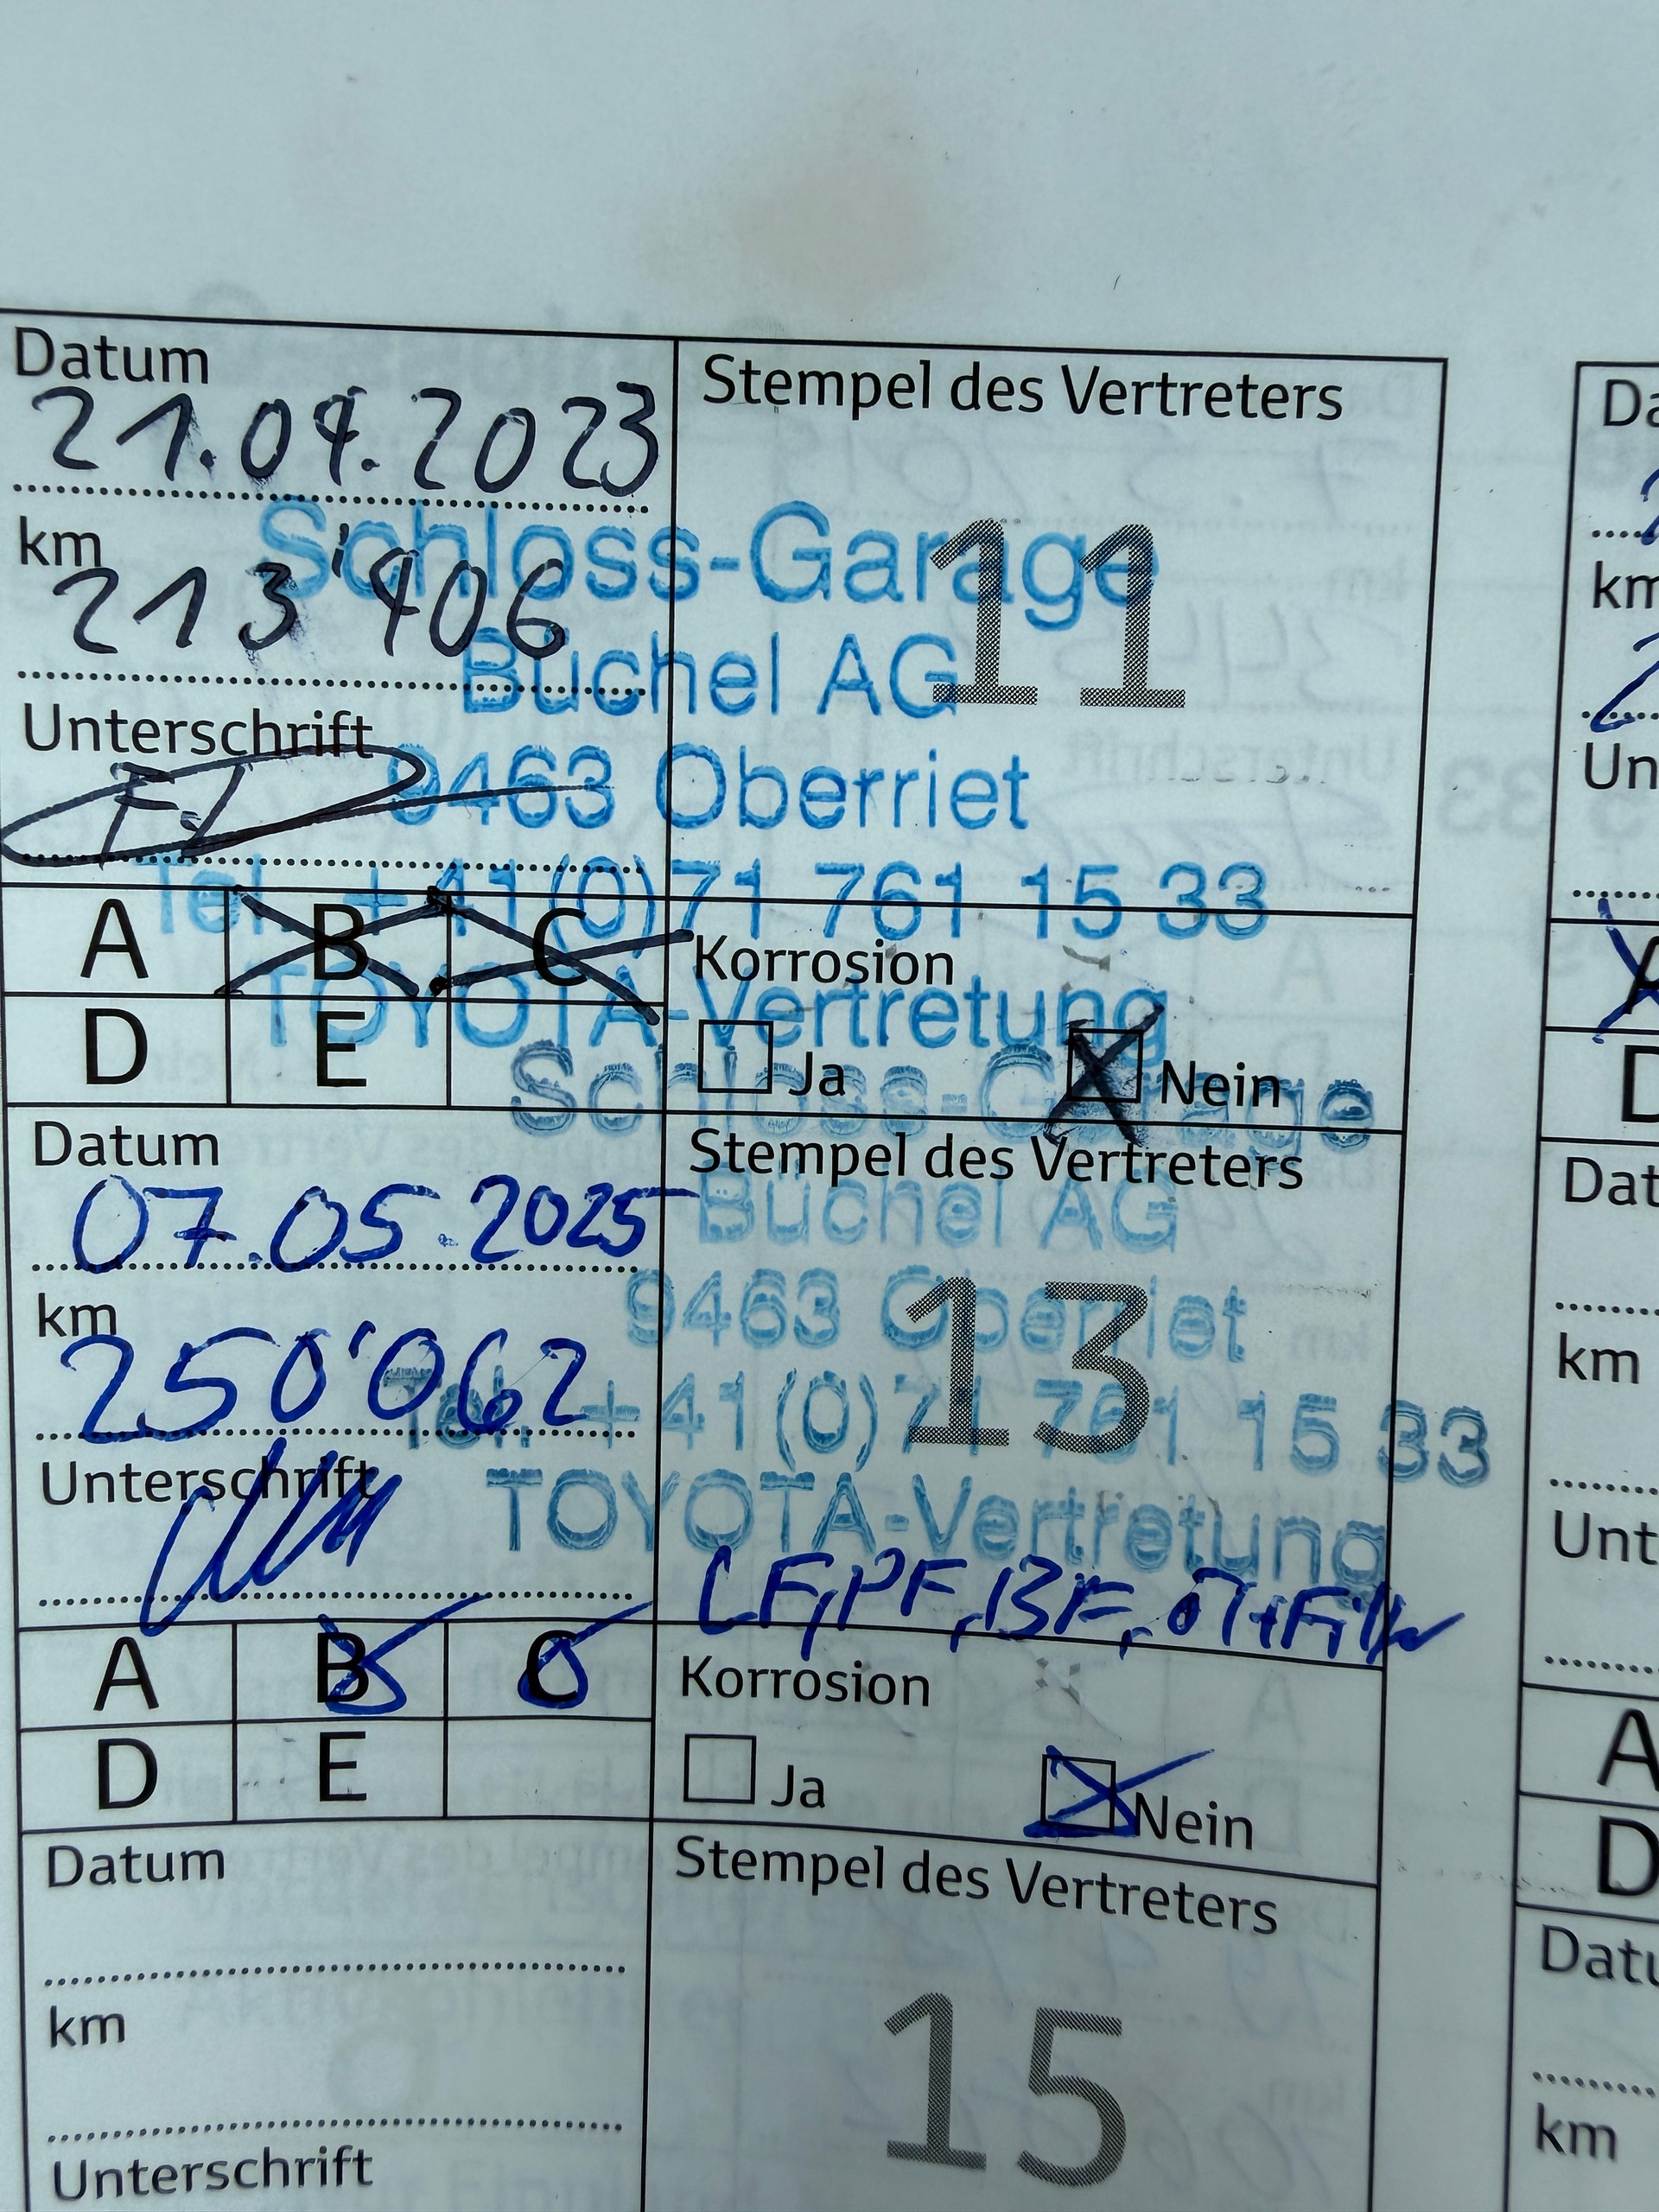 Datum
21.04.2023
Stempel des Vertreters
km
213'406
11
Schloss-Garage
Büchel AG
9463 Oberriet
Tel. +41(0)71 761 15 33
TOYOTA-Vertretung
Unterschrift
A B C
D E
Korrosion
Ja Nein
Datum
07.05.2025
Stempel des Vertreters
km
250'062
13
Schloss-Garage
Büchel AG
9463 Oberriet
Tel. +41(0)71 761 15 33
TOYOTA-Vertretung
Unterschrift
LF, PF, BF,
A B C
D E
Korrosion
Ja Nein
Datum
Stempel des Vertreters
km
15
Unterschrift
km
A
D
km
A
D
km